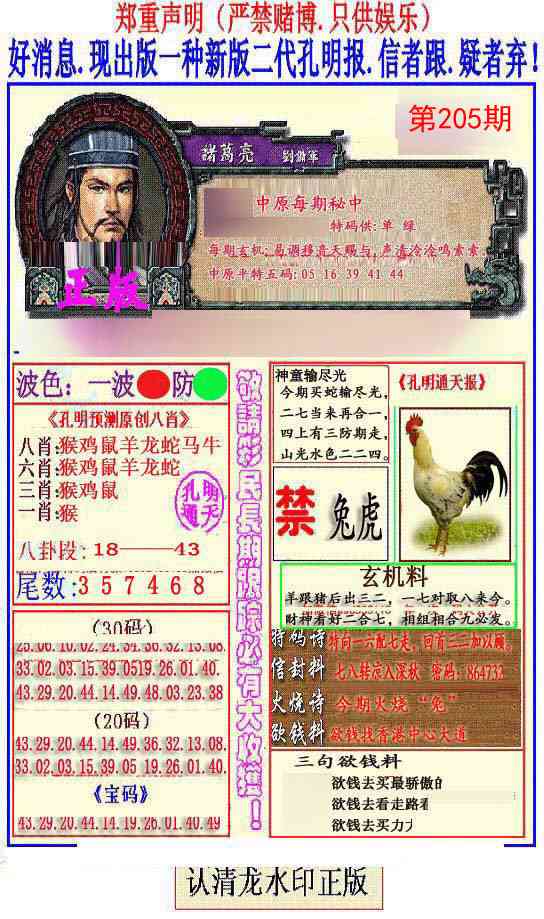 郑重声明（严禁赌博.只供娱乐）
好消息.现出版一种新版二代孔明报.信者跟.疑者弃!
第205期
諸葛亮 劉備軍
中原每期秘中
特码供:单 绿
每期玄机:易调移音天赐与,声清泠泠鸣索索.
中原平特五码:05 16 39 41 44
正版
波色：一波 防
《孔明预测原创八肖》
八肖:猴鸡鼠羊龙蛇马牛
六肖:猴鸡鼠羊龙蛇
三肖:猴鸡鼠
一肖:猴
孔明
通天
八卦段:18——43
尾数:357468
(30码)
25.06.10.02.24.34.36.32.13.08.
33.02.03.15.39.0519.26.01.40.
43.29.20.44.14.49.48.03.23.38
(20码)
43.29.20.44.14.49.36.32.13.08.
33.02.03.15.39.05.19.26.01.40
《宝码》
43.29.20.44.14.19.26.01.40.49
敬請彩民長期跟踪必有大收獲！
神童输尽光
今期买蛇输尽光,
二七当来再合一,
四上有三防期走,
山光水色二二四。
《孔明通天报》
禁 兔虎
玄机料
羊跟猪后出三二，一七对取八来今。
财神看好二合七，相组相合九必发。
特码诗 特向一六配七走，回首三三加以顾。
信封料 七八转应入深秋 密码：864733
火烧诗 今期火烧“兔”
欲钱料 欲钱找香港中心大道
三句欲钱料
欲钱去买最骄傲的
欲钱去看走路看
欲钱去买力
认清龙水印正版